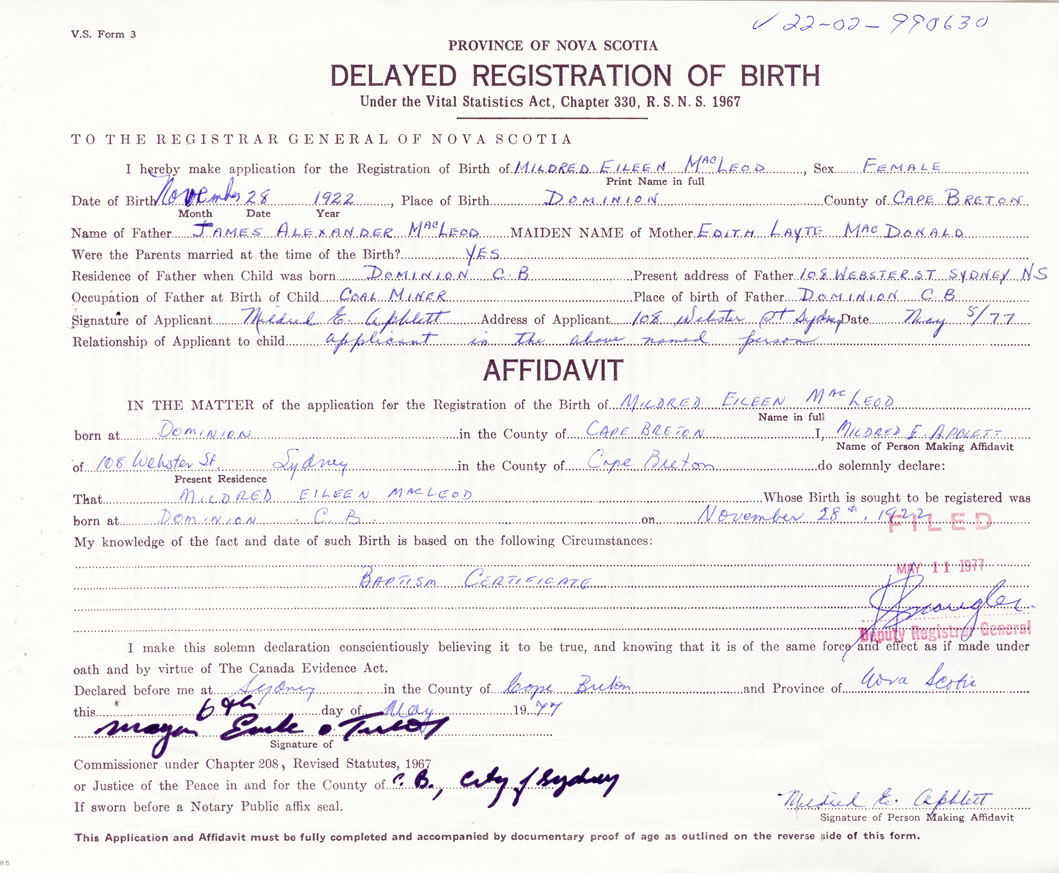 V.S. Form 3
✓ 22-02-990630
PROVINCE OF NOVA SCOTIA
DELAYED REGISTRATION OF BIRTH
Under the Vital Statistics Act, Chapter 330, R.S.N.S. 1967
TO THE REGISTRAR GENERAL OF NOVA SCOTIA
I hereby make application for the Registration of Birth of MILDRED EILEEN MACLEOD, Sex FEMALE
Print Name in full
Date of Birth November 28 1922, Place of Birth DOMINION County of CAPE BRETON
Month Date Year
Name of Father JAMES ALEXANDER MACLEOD MAIDEN NAME of Mother EDITH LAYTE MACDONALD
Were the Parents married at the time of the Birth? YES
Residence of Father when Child was born DOMINION C.B Present address of Father 108 WEBSTER ST SYDNEY NS
Occupation of Father at Birth of Child COAL MINER Place of birth of Father DOMINION C B
Signature of Applicant Mildred E. Apblett Address of Applicant 108 Webster St Sydney Date May 5/77
Relationship of Applicant to child applicant is the above named person
AFFIDAVIT
IN THE MATTER of the application for the Registration of the Birth of MILDRED EILEEN MACLEOD
Name in full
born at DOMINION in the County of CAPE BRETON I, MILDRED E. APBLETT
Name of Person Making Affidavit
of 108 Webster St. Sydney in the County of Cape Breton do solemnly declare:
Present Residence
That MILDRED EILEEN MACLEOD Whose Birth is sought to be registered was
born at DOMINION C.B. on November 28th, 1922
FILED
My knowledge of the fact and date of such Birth is based on the following Circumstances:
MAY 11 1977
BAPTISM CERTIFICATE
Deputy Registrar General
I make this solemn declaration conscientiously believing it to be true, and knowing that it is of the same force and effect as if made under
oath and by virtue of The Canada Evidence Act.
Declared before me at Sydney in the County of Cape Breton and Province of Nova Scotia
this 6th day of May 1977
Mayor
Signature of
Commissioner under Chapter 208, Revised Statutes, 1967
or Justice of the Peace in and for the County of C.B., City of Sydney
If sworn before a Notary Public affix seal.
Mildred E. Apblett
Signature of Person Making Affidavit
This Application and Affidavit must be fully completed and accompanied by documentary proof of age as outlined on the reverse side of this form.